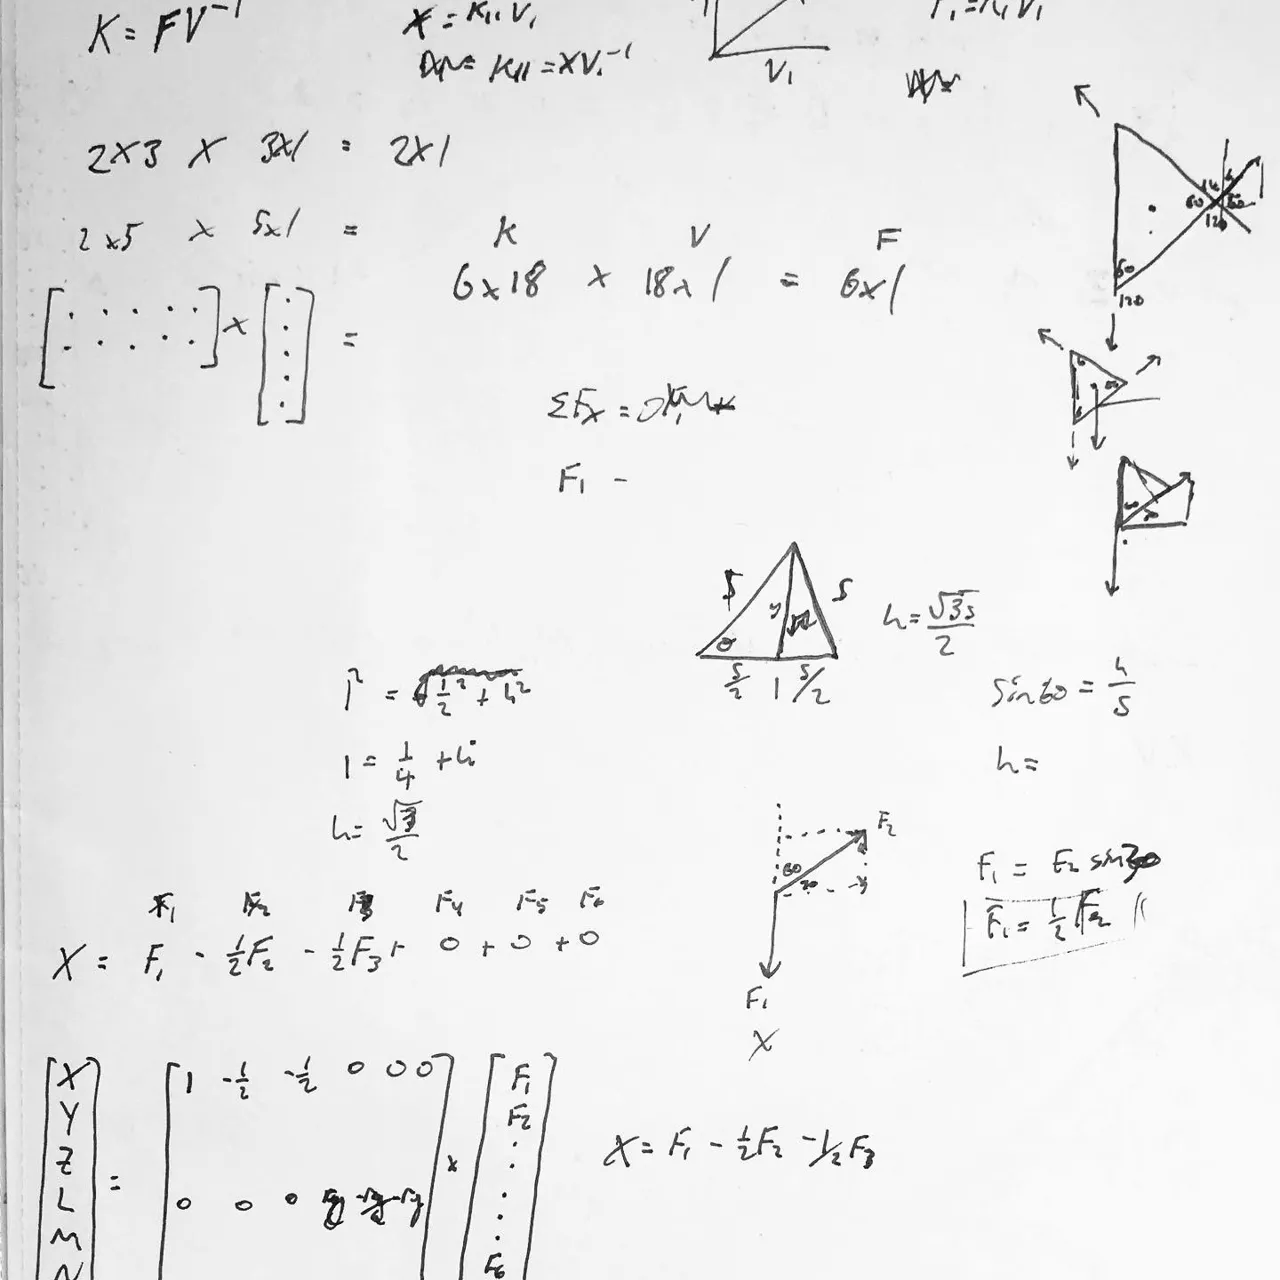 K = FV⁻¹
X = K₁₁ V₁
K₁₁ = XV₁⁻¹
V₁
2x3 x 3x1 = 2x1
2x5 x 5x1 =
K V F
6x18 x 18x1 = 6x1
60
120
60
120
x =
ΣFx = 0
F₁ -
S
S
θ
S/2 1 S/2
h = √3s/2
sin60 = h/s
h =
1² = 1/2² + h²
1 = 1/4 + h²
h = √3/2
F₂
60
30
F₁
X
F₁ = F₂ sin30
F₁ = 1/2 F₂
F₁ F₂ F₃ F₄ F₅ F₆
X = F₁ - 1/2F₂ - 1/2F₃ + 0 + 0 + 0
X
Y
Z
L
M
N
=
1 -1/2 -1/2 0 0 0
0 0 0
x
F₁
F₂
F₆
X = F₁ - 1/2F₂ - 1/2F₃